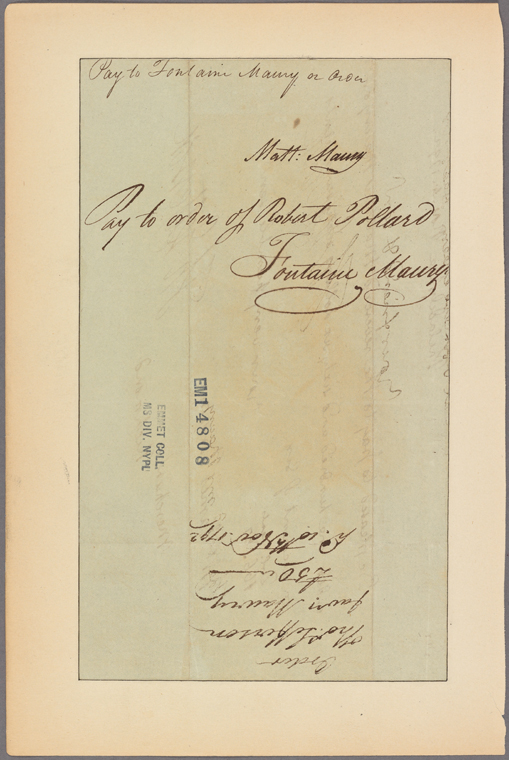 Pay to Fontaine Maury or order
Matt: Maury
Pay to order of Robert Pollard
Fontaine Maury
EM14808
EMMET COLL.
MS DIV. NYPL
Order
Tho: Jefferson
favr. Maury
£50
Nov: 1792